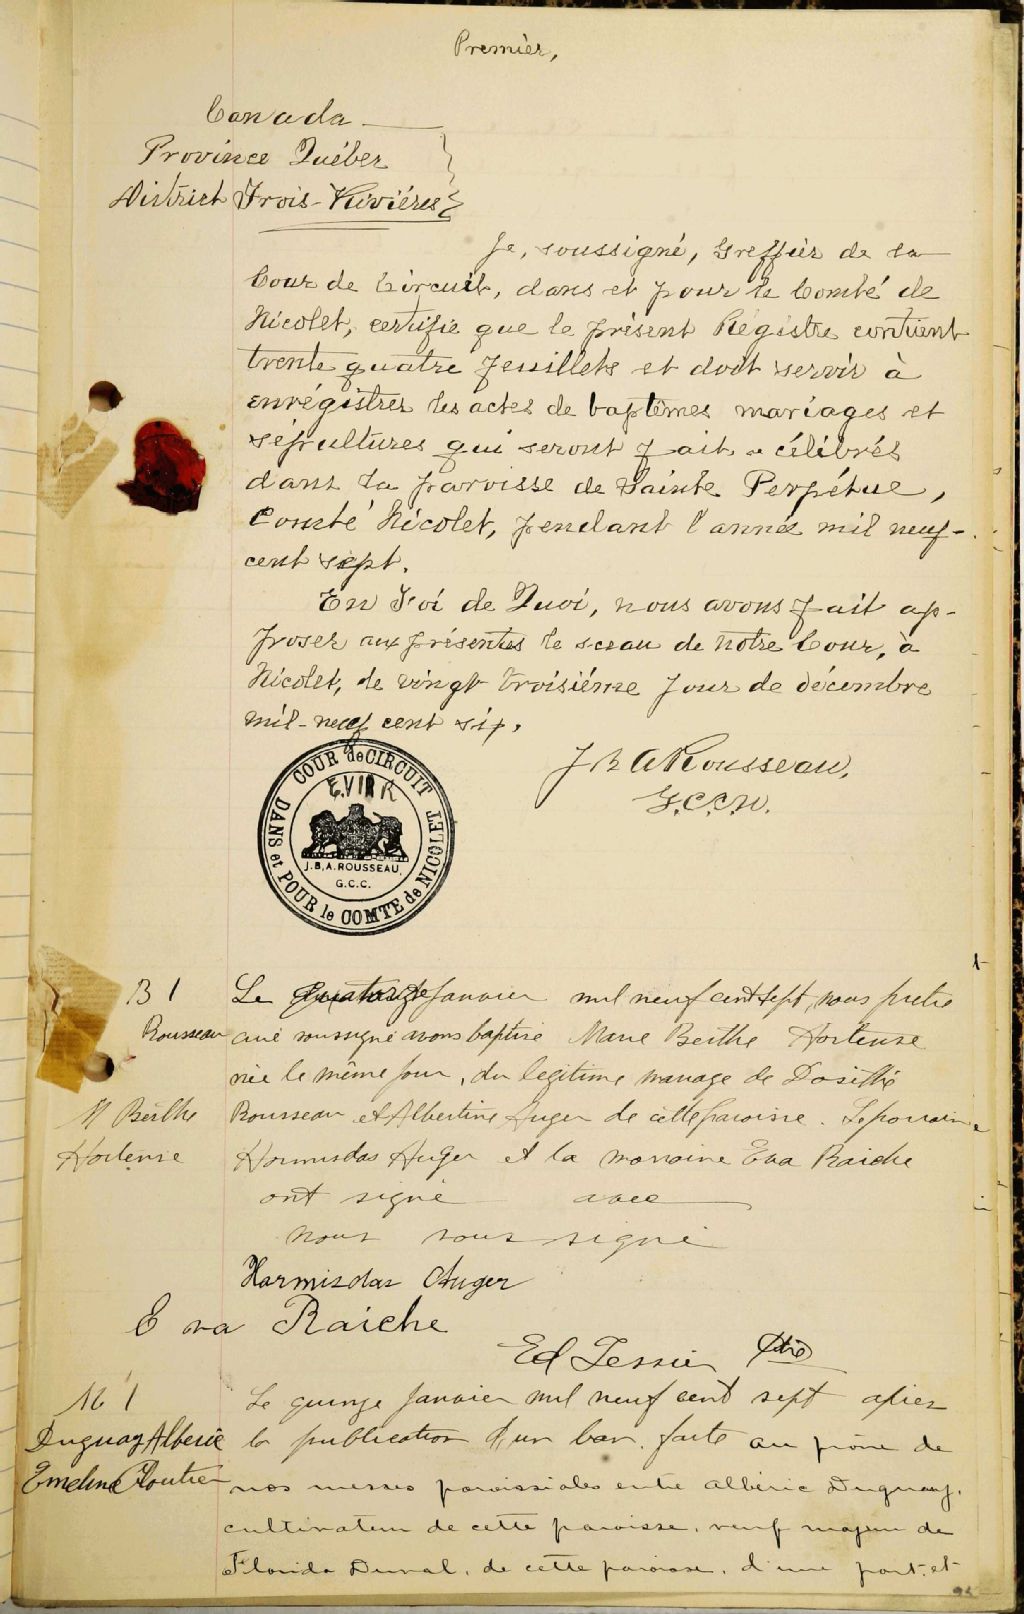 Premier,
Canada
Province Québec
District Trois-Rivières
Je, soussigné, Greffier de la
Cour de Circuit, dans et pour le Comté de
Nicolet, certifie que le présent Régistre contient
trente quatre feuillets et doit servir à
enrégistrer les actes de baptêmes mariages et
sépultures qui seront fait célébrés
dans la paroisse de Sainte Perpétue,
Comté Nicolet, pendant l'année mil neuf-
cent sept.
En Foi de Quoi, nous avons fait ap-
poser aux présentes le sceau de notre Cour, à
Nicolet, le vingt troisième jour de décembre
mil-neuf cent six.
J B A Rousseau,
G.C.C.N.
COUR de CIRCUIT
DANS et POUR le COMTE de NICOLET
E.VII R
J.B.A. ROUSSEAU,
G.C.C.
B 1
Rousseau
M Berthe
Hortense
Le quatorze Janvier mil neuf cent sept, nous prêtre
curé soussigné avons baptisé Marie Berthe Hortense
née le même jour, du légitime mariage de Dosithé
Rousseau et Albertine Auger de cette paroisse. Le parrain
Hormisdas Auger et la marraine Eva Raiche
ont signé avec
nous soussigné
Harmisdas Auger
Eva Raiche
Ed Tessier Ptre
M 1
Duguay Alberic
Emeline Cloutier
Le quinze Janvier mil neuf cent sept après
la publication d'un ban faite au prône de
nos messes paroissiales entre Albéric Duguay,
cultivateur de cette paroisse, veuf majeur de
Florida Duval, de cette paroisse, d'une part, et